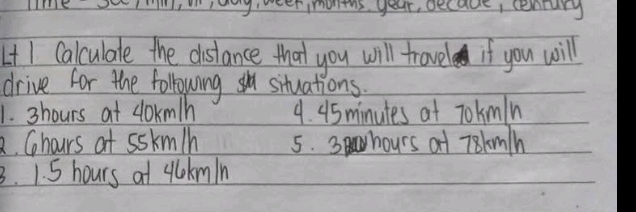 Time - sec, min, hr, day, week, months, year, decade, century
Lt 1 Calculate the distance that you will travel if you will
drive for the following situations.
1. 3hours at 40km/h
4. 45minutes at 70km/h
2. 6hours at 55km/h
5. 3 hours at 78km/h
3. 1.5 hours at 46km/h